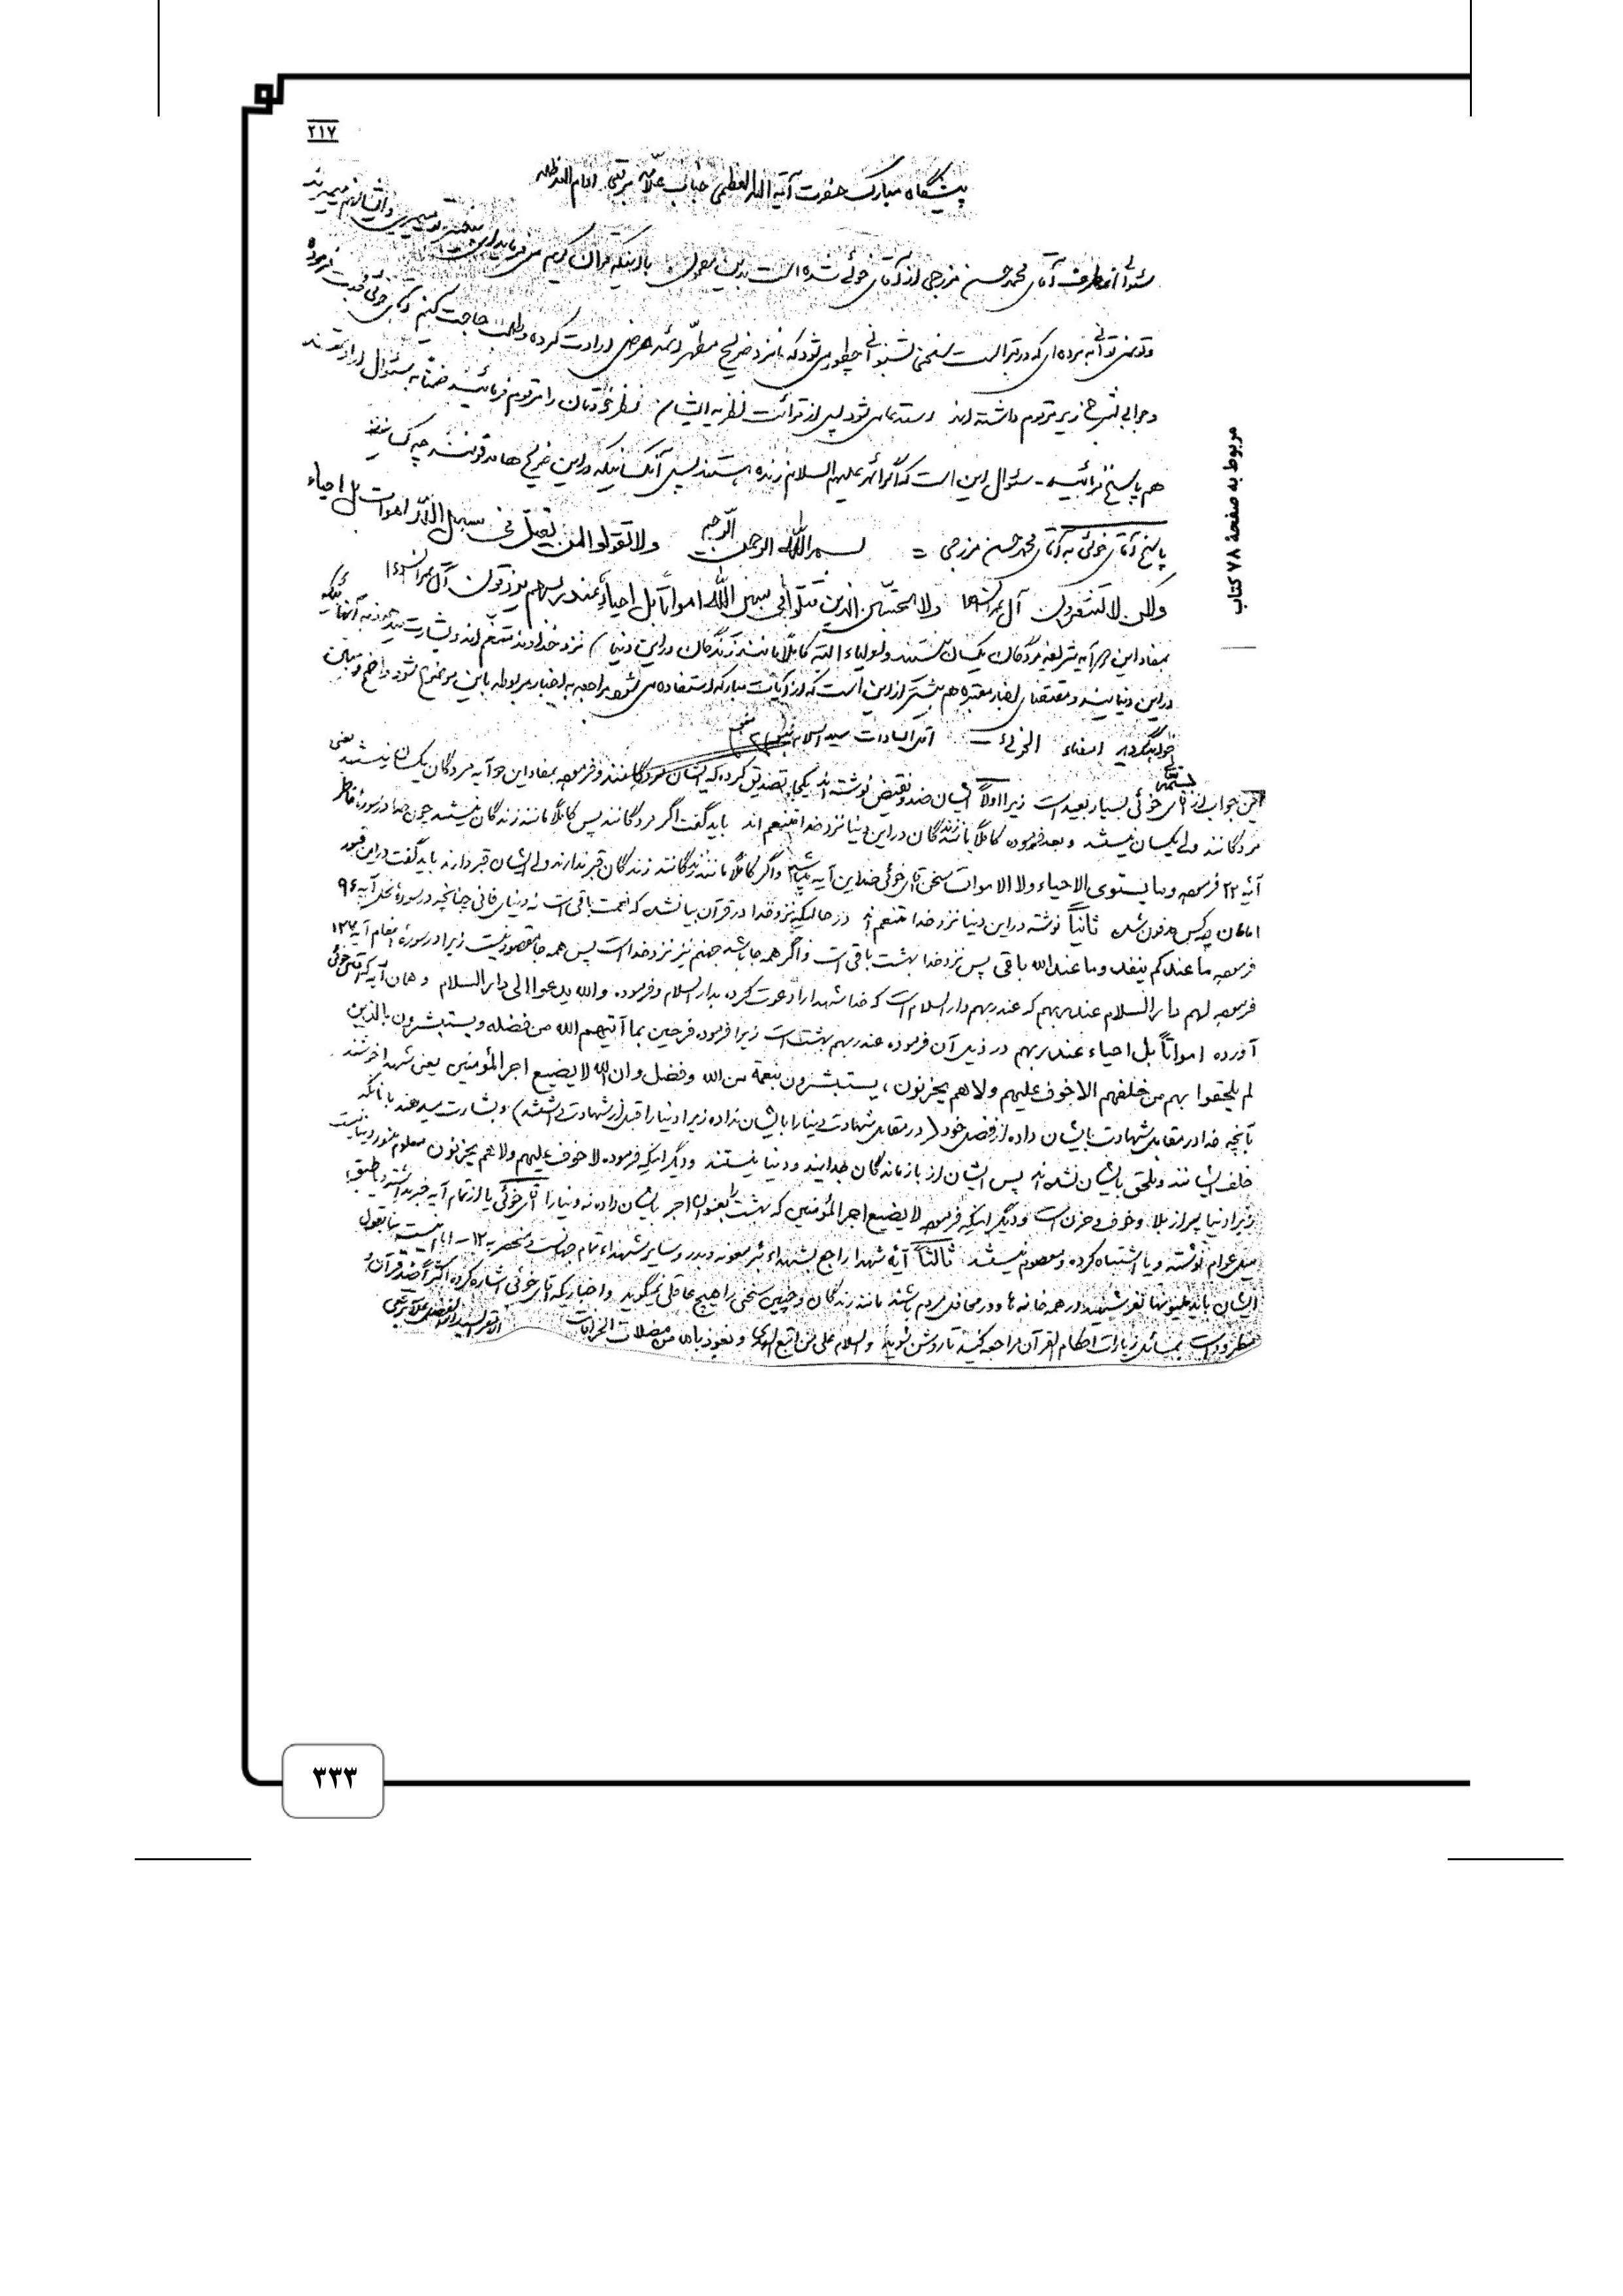 ۲۱۷
پیشگاه مبارک حضرت آیة الله العظمی جناب علامه برقعی ادام الله ظله
سئوالی از طرف آقای محمدحسن مزرجی از آقای خوئی شده است بدین مضمون با اینکه قرآن کریم می‌فرماید تو میمیری و ایشان هم میمیرند
و تو نمی‌توانی به مرده‌ای که در قبر است سخنی بشنوانی چطور می‌شود که ما نزد ضریح مطهر ائمه عرض ارادت کرده و طلب حاجت کنیم آقای خوئی
و جوابی بشرح زیر مرقوم داشته‌اند استدعا می‌شود پس از قرائت نظریه ایشان نظر خودتان را مرقوم فرمائید ضمنا به سئوال ارادتمند
هم پاسخ فرمائید - سئوال این است که اگر ائمه علیهم السلام زنده هستند پس آن کسانیکه در این ضریح ها مدفونند چه کسانیند
پاسخ آقای خوئی به آقای محمدحسن مزرجی = بسم الله الرحمن الرحیم ولا تقولوا لمن یقتل فی سبیل الله اموات بل احیاء
ولکن لا تشعرون ولا تحسبن الذین قتلوا فی سبیل الله امواتا بل احیاء عند ربهم یرزقون آل عمران
بمفاد این دو آیه شریفه مردگان یکسان نیستند و اولیاء البته کاملا مانند زندگان در این دنیا نزد خداوند متنعم‌اند و بشارت
در این دنیایند و مقتضای اخبار معتبره هم بیشتر از این است که از آیات مبارکه استفاده می‌شود مراجعه به اخبار مربوطه باین موضوع شود واضح و مبین
خواهد گردید امضاء الخوئی
بسمه تعالی
این جواب از آقای خوئی بسیار بعید است زیرا اولاً ایشان ضد و نقیض نوشته‌اند یکجا تصدیق کرده که ایشان مردگانند و فرموده بمفاد این دو آیه مردگان یکسان نیستند یعنی
مردگانند ولی یکسان نیستند و بعد فرموده کاملا مانند زندگان در این دنیا نزد خدا متنعم اند باید گفت اگر مردگانند پس کاملا مانند زندگان نیستند چون خدا در سورهٔ فاطر
آیهٔ ۲۲ فرموده وما یستوی الاحیاء ولا الاموات سخن آقای خوئی ضد این آیه میباشد و اگر کاملا مانند زندگانند زندگان قبر ندارند ولی ایشان قبر دارند باید گفت در این قبور
امامان چه کس مدفون شده ثانیاً نوشته در این دنیا نزد خدا متنعم‌اند در حالیکه نزد خدا در قرآن بیان شده که نعمت باقی است نه دنیای فانی چنانچه در سورهٔ نحل آیه ۹۶
فرموده ما عندکم ینفد وما عندالله باقی پس نزد خدا بهشت باقی است و اگر همه جا باشد جهنم نیز نزد خدا است پس همه جا مقصود نیست زیرا در سورهٔ انعام آیه ۱۲۷
فرموده لهم دار السلام عند ربهم که عند ربهم دار السلام است که خدا شهدا را دعوت کرده بدار السلام و فرموده والله یدعوا الی دار السلام و همان آیه که آقای خوئی
آورده امواتاً بل احیاء عند ربهم در ذیل آن فرموده عند ربهم بهشت است زیرا فرموده فرحین بما آتیهم الله من فضله ویستبشرون بالذین
لم یلحقوا بهم من خلفهم الا خوف علیهم ولا هم یحزنون ، یستبشرون بنعمة من الله وفضل وان الله لا یضیع اجر المؤمنین یعنی شهدا خرسندند
بآنچه خدا در مقابل شهادت بایشان داده از فضل خود (در مقابل شهادت دنیا را بایشان نداده زیرا دنیا را قبل از شهادت داشتند) و بشارت میدهند بآنانکه
خلف ایشانند و ملحق بایشان نشده‌اند پس ایشان از بازماندگان جدایند و در دنیا نیستند و دیگر اینکه فرموده لا خوف علیهم ولا هم یحزنون معلوم میشود دنیا نیست
زیرا دنیا پر از بلا و خوف و حزن است و دیگر اینکه فرموده لا یضیع اجر المؤمنین که بهشت را بعنوان اجر بایشان داده نه دنیا را آقای خوئی یا از تمام آیه خبر نداشته و یا طبق
میل عوام نوشته و یا اشتباه کرده و معصوم نیستند ثالثاً آیهٔ شهدا راجع بشهداء بئر معونه و بدر و سایر شهداء تمام جهانست و منحصر به ۱۲ - امام نیست بنابقول
ایشان باید ملیونها نفر شهید در همه خانه ها و در محافل مردم باشند مانند زندگان و چنین سخنی را هیچ عاقلی نمیگوید و اخباریکه آقای خوئی اشاره کرده اکثراً ضد قرآن و
مطرود است بمسائل زیارات احکام القرآن مراجعه کنید تا روشن شوید والسلام علی من اتبع الهدی و نعوذ بالله من مضلات الخرافات
الاحقر السید ابوالفضل علامه برقعی
مربوط به صفحهٔ ۷۸ کتاب
۳۳۳